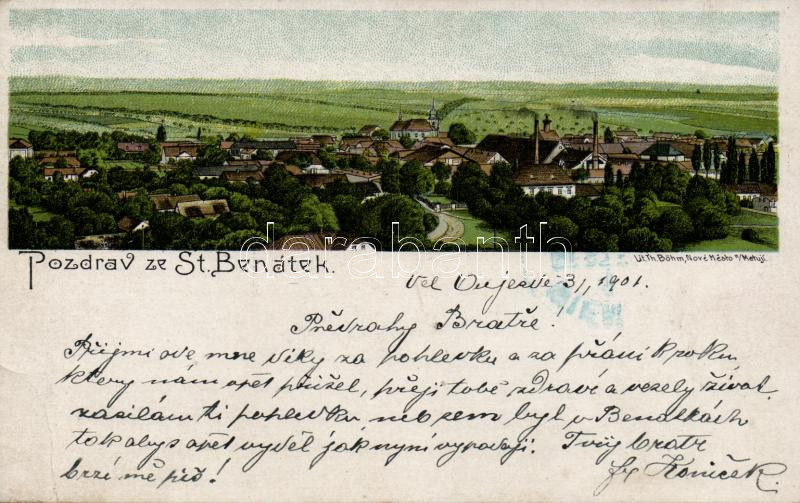 Pozdrav ze St. Benátek.
Lit. Th. Böhm, Nové Město n/Metují.
darabanth
Vel Oujezdě 3/1 1901.
Předrahý Bratře!
Přijmi ode mne díky za pohledku a za přání k roku
který nám opět přišel, přeji tobě zdraví a veselý život
zasílám ti pohledku neb sem byl v Benátkách
tak abys opět vyděl jak nyní vypadají. Tvůj bratr
brzi mě piš! Fr Koníček